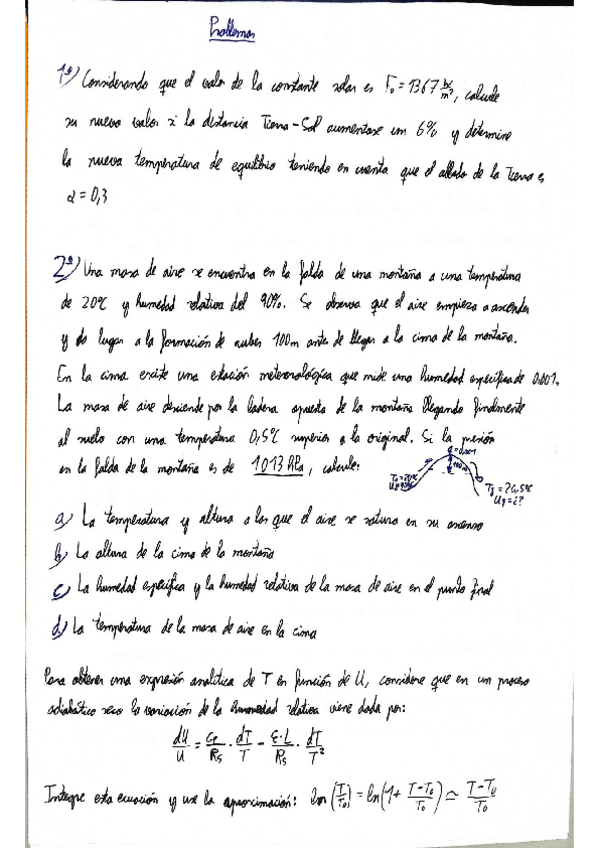 Problemas
1º) Considerando que el valor de la constante solar es F₀ = 1367 w/m², calcule
su nuevo valor si la distancia Tierra-Sol aumentase un 6% y determine
la nueva temperatura de equilibrio teniendo en cuenta que el albedo de la Tierra es
α = 0,3
2º) Una masa de aire se encuentra en la falda de una montaña a una temperatura
de 20ºC y humedad relativa del 90%. Se observa que el aire empieza a ascender
y da lugar a la formación de nubes 100m antes de llegar a la cima de la montaña.
En la cima existe una estación meteorológica que mide una humedad específica de 0.001.
La masa de aire desciende por la ladera opuesta de la montaña llegando finalmente
al suelo con una temperatura 0,5ºC superior a la original. Si la presión
en la falda de la montaña es de 1013 hPa, calcule:
100m
T₀ = 20ºC
Tf = 20,5ºC
Uf = ¿?
a) La temperatura y altura a los que el aire se satura en su ascenso
b) La altura de la cima de la montaña
c) La humedad específica y la humedad relativa de la masa de aire en el punto final
d) La temperatura de la masa de aire en la cima
Para obtener una expresión analítica de T en función de U, considere que en un proceso
adiabático seco la variación de la humedad relativa viene dada por:
dU/U = Cp/Rs · dT/T - ε·L/Rs · dT/T²
Integre esta ecuación y use la aproximación: ln(T/T₀) = ln(1 + T-T₀/T₀) ≃ T-T₀/T₀